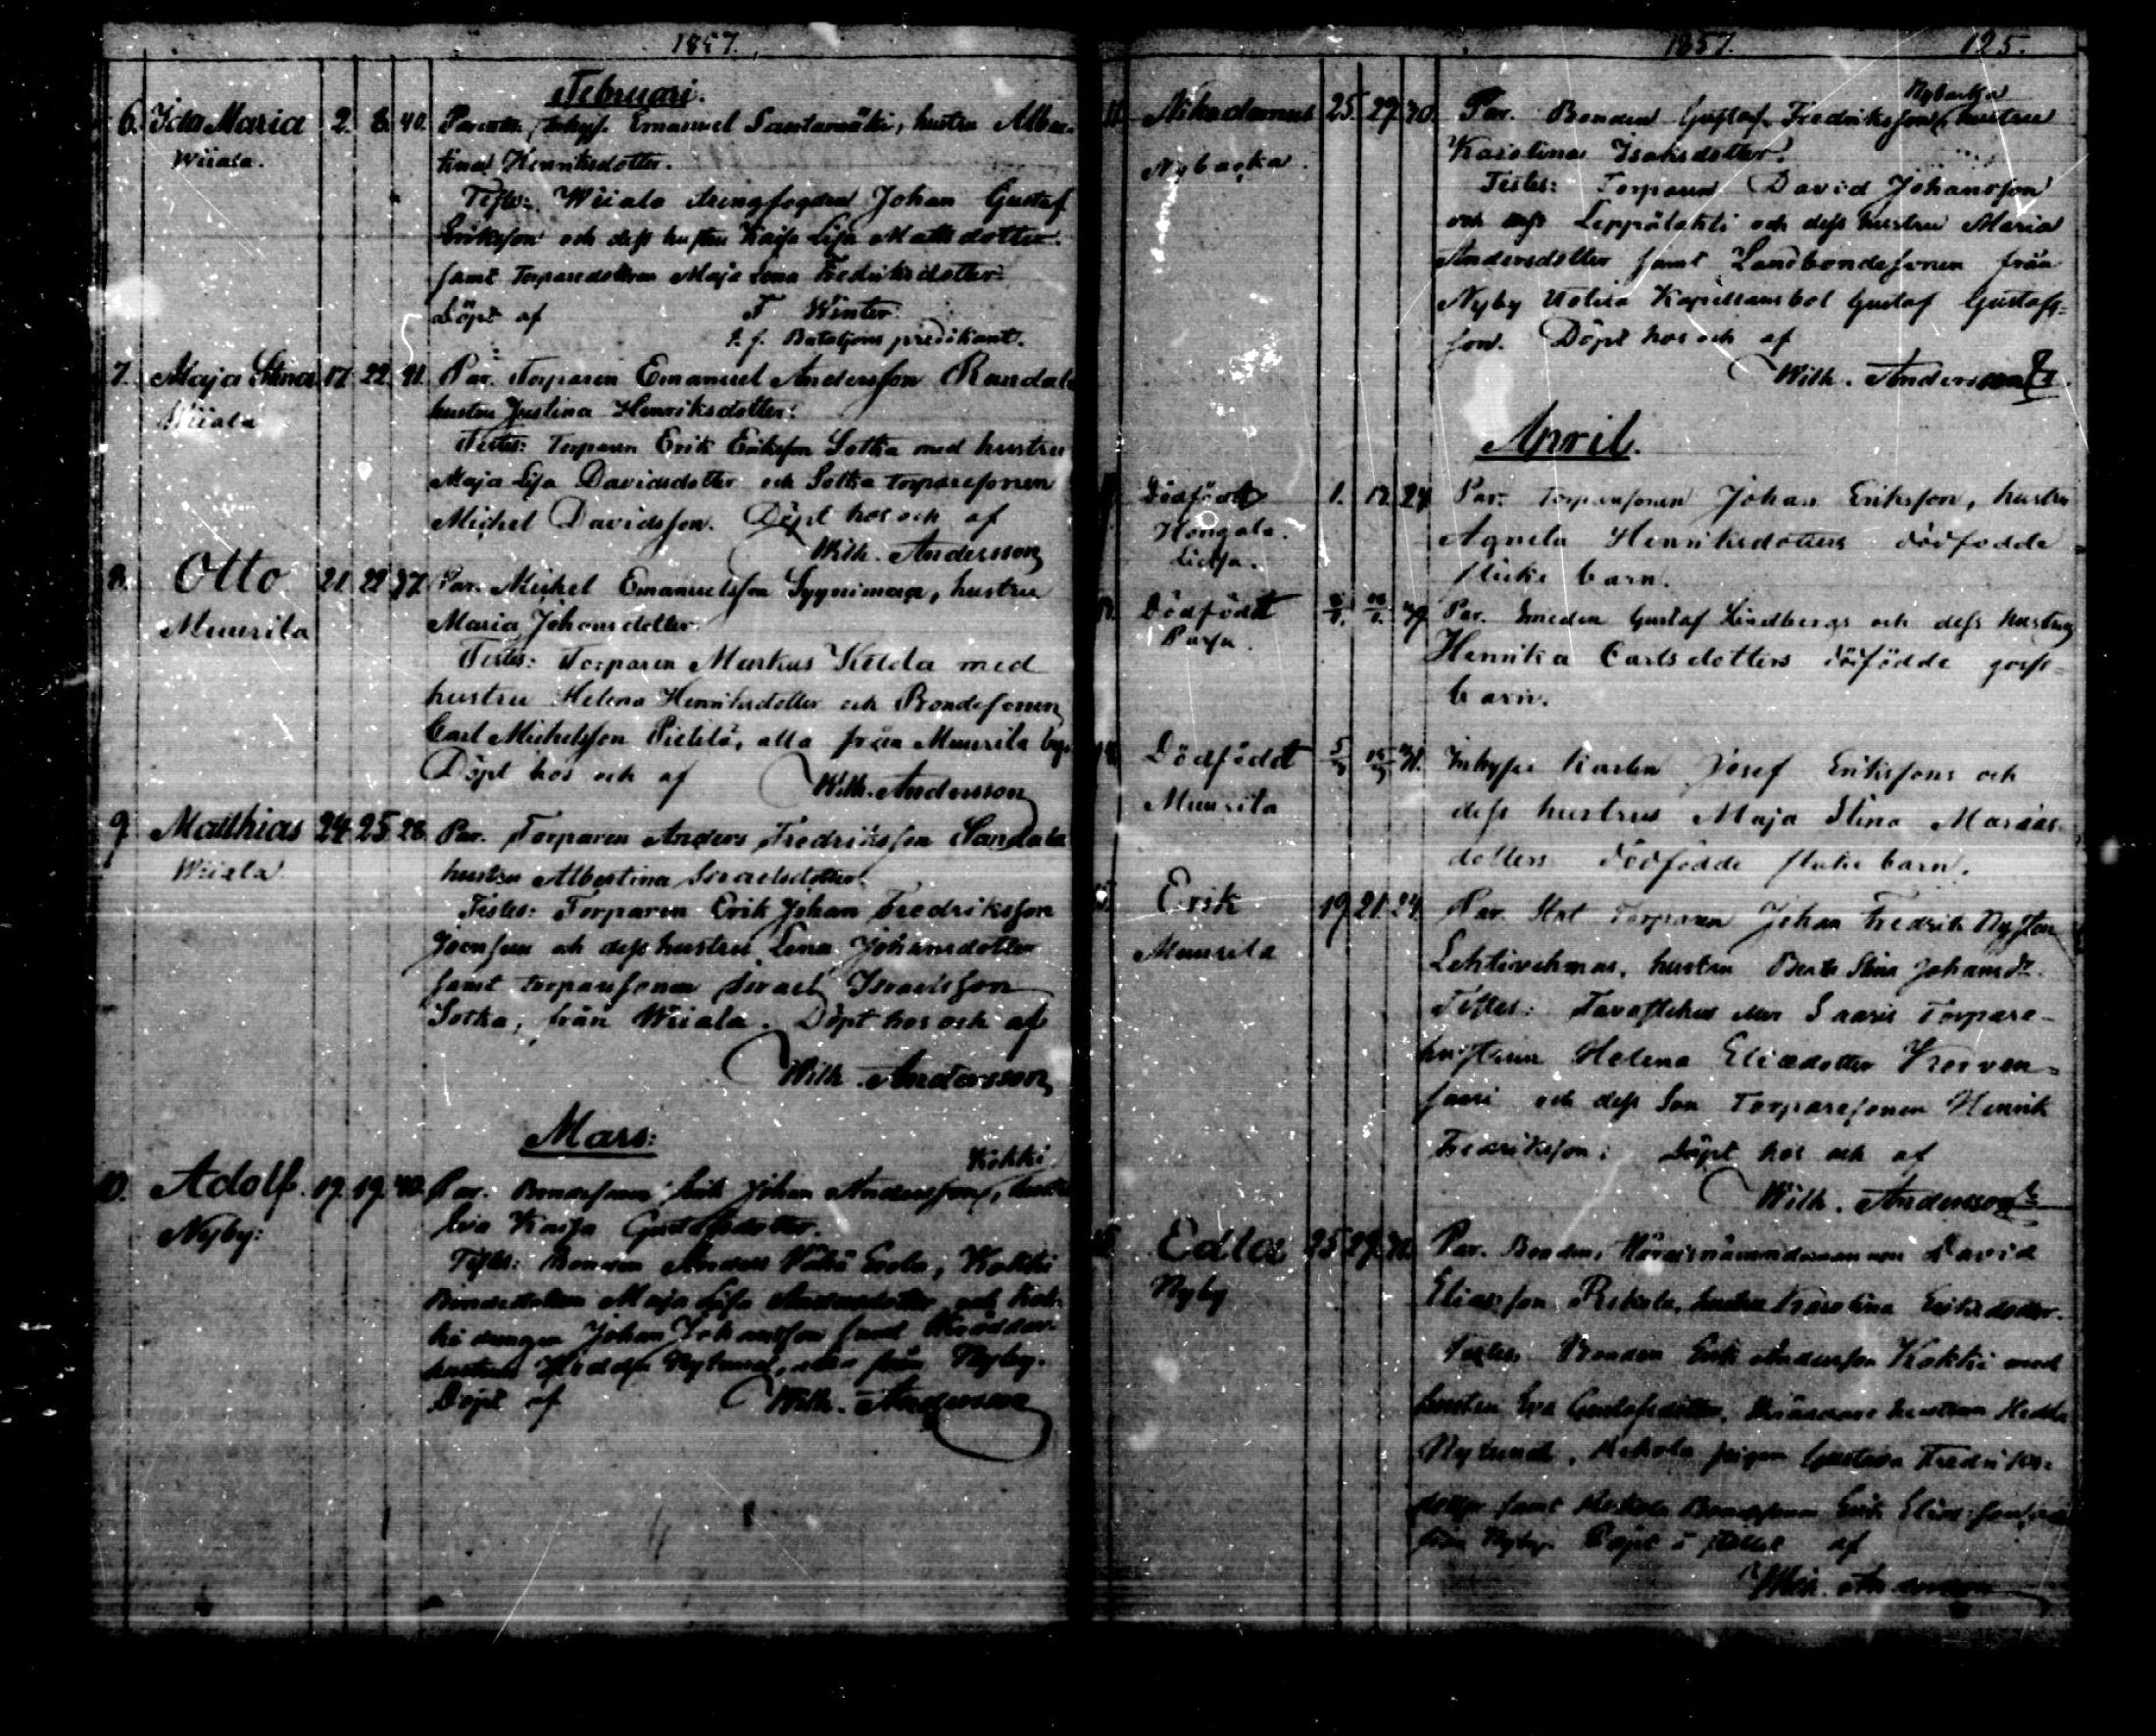 1857.
Februari.
6. Ida Maria 2. 8. 40. Inhys. Emanuel Santamäki, hustru Alber-
Wiiala. tina Henriksdotter.
Testes: Wiiala Johan Gustaf
Eriksson och dess hustru Kajsa Lisa Mattsdotter
samt Torparedottren Maja Lena Fredriksdotter.
Döpt af F Winter
Bataljons predikant.
7. Maja Stina 17. 22. 41. Par. Torparen Emanuel Andersson Randala
Wiiala hustru Justina Henriksdotter.
Testes: Torparen Erik Eriksson Sotka med hustru
Maja Lisa Davidsdotter och Sotka torparesonen
Michel Davidsson. Döpt hos och af
Wilh. Andersson
8. Otto 21. 22. 37. Par. Michel Emanuelsson hustru
Muurila Maria Johansdotter.
Testes: Torparen Markus Kulda med
hustru Helena Henriksdotter och Bondesonen
Carl Michelsson Pietilä, alla från Muurila by.
Döpt hos och af Wilh. Andersson
9. Matthias 24. 25. 28. Par. Torparen Anders Fredriksson Sandala
Wiiala hustru Albertina Israelsdotter.
Testes: Torparen Erik Johan Fredriksson
och dess hustru Lena Johansdotter
samt torparesonen Israel Israelsson
Sotka, från Wiiala. Döpt hos och af
Wilh. Andersson
Mars:
Kokki
10. Adolf. 19. 19. 40. Par. Bondesonen Erik Johan Andersson, hustru
Nyby: Eva Kajsa Gustafsdotter.
Testes: Bonden Anders Kokki
Bondedottren Maja Lisa Andersdotter och Kok-
ki drängen Johan Johansson samt Skräddar-
hustrun Hedda Nylund, alla från Nyby.
Döpt af Wilh. Andersson
1857. 125.
Nybacka
11. Nikodemus 25. 27. 30. Par. Bonden Gustaf Fredriksson, hustru
Nybacka. Karolina Isaksdotter.
Testes: Torparen David Johansson
Leppälahti och dess hustru Maria
Andersdotter samt Landbondesonen från
Nyby Uotila Kapellansbol Gustaf Gustafs-
son. Döpt hos och af
Wilh. Andersson
April.
Dödfödt 1. 12. 24 Par. Torparesonen Johan Eriksson, hustru
Hongola. Agneta Henriksdotters dödfödde
flicke barn.
Dödfödt Par. Smeden Gustaf Lindbergs och dess hustrus
Henrika Carlsdotters dödfödde gosse-
barn.
Dödfödt Inhyses Karlen Josef Erikssons och
Muurila dess hustrus Maja Stina Mariæ
dotters dödfödde flicke barn.
Erik 19 21. 24. Par. Torparen Johan Fredrik
Muurila Lehtivehmas, hustru Stina Johansdr.
Testes: Saaris Torpare-
hustrun Helena Eliædotter Korven-
suu och dess Son Torparesonen Henrik
Fredriksson. Döpt hos och af
Wilh. Andersson
Edla 25. 29. Par. Bonden, Häradsnämndemannen David
Nyby Eliasson hustru Karolina Eriksdotter.
Testes: Bonden Erik Andersson Kokki med
hustru Eva Gustafsdotter, Skräddare hustrun Hedda
Nylund, pigan Gustava Fredriks-
dotter samt Bondesonen Erik Eliasson, alla
från Nyby. Döpt af
Wilh. Andersson